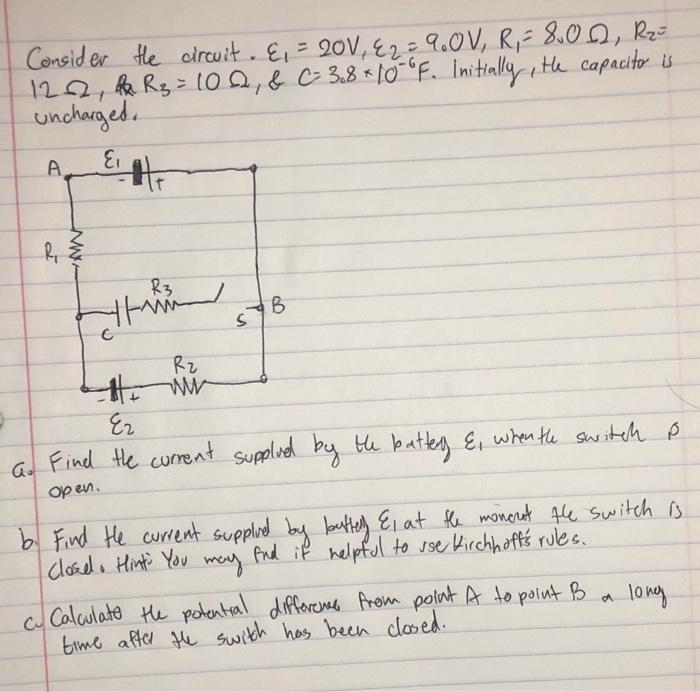 Consider the circuit. ε₁ = 20V, ε₂ = 9.0V, R₁ = 8.0 Ω, R₂ =
12 Ω, R₃ = 10 Ω, & C = 3.8 × 10⁻⁶F. Initially, the capacitor is
uncharged.
A ε₁
- +
R₁
R₃
C S B
R₂
- +
ε₂
a. Find the current supplied by the battery ε₁ when the switch is
open.
b. Find the current supplied by battery ε₁ at the moment the switch is
closed. Hint: You may find it helpful to use Kirchhoff's rules.
c. Calculate the potential difference from point A to point B a long
time after the switch has been closed.